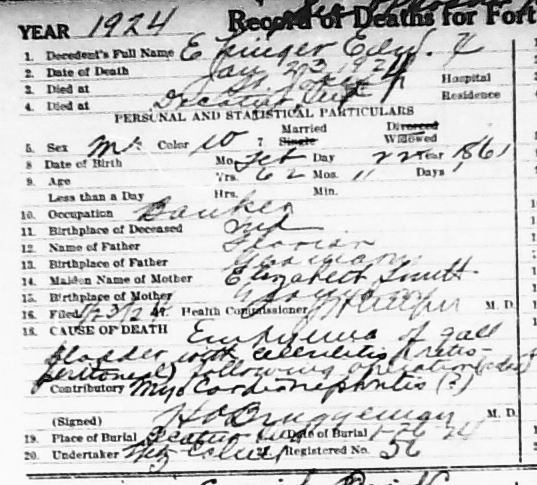 YEAR 1924 Record of Deaths for Fort
1. Decedent's Full Name Epinger Edw. F
2. Date of Death Jan 23, 1924
3. Died at Hospital
4. Died at Decatur, Ind Residence
PERSONAL AND STATISTICAL PARTICULARS
Married Divorced
5. Sex M Color W 7. Single Widowed
8 Date of Birth Mo. Feb Day 22 Year 1861
9. Age Yrs. 62 Mos. 11 Days 1
Less than a Day Hrs. Min.
10. Occupation Banker
11. Birthplace of Deceased Ind
12. Name of Father Florian
13. Birthplace of Father Germany
14. Maiden Name of Mother Elizabeth
15. Birthplace of Mother
16. Filed 1/23/24 Health Commissioner M. D.
18. CAUSE OF DEATH Empyema of gall
bladder with cellulitis (retro
peritoneal) following operation
Contributory Myocardionephritis (?)
(Signed) H O Bruggeman M. D.
19. Place of Burial Decatur Ind Date of Burial 1-26-24
20. Undertaker Registered No. 56